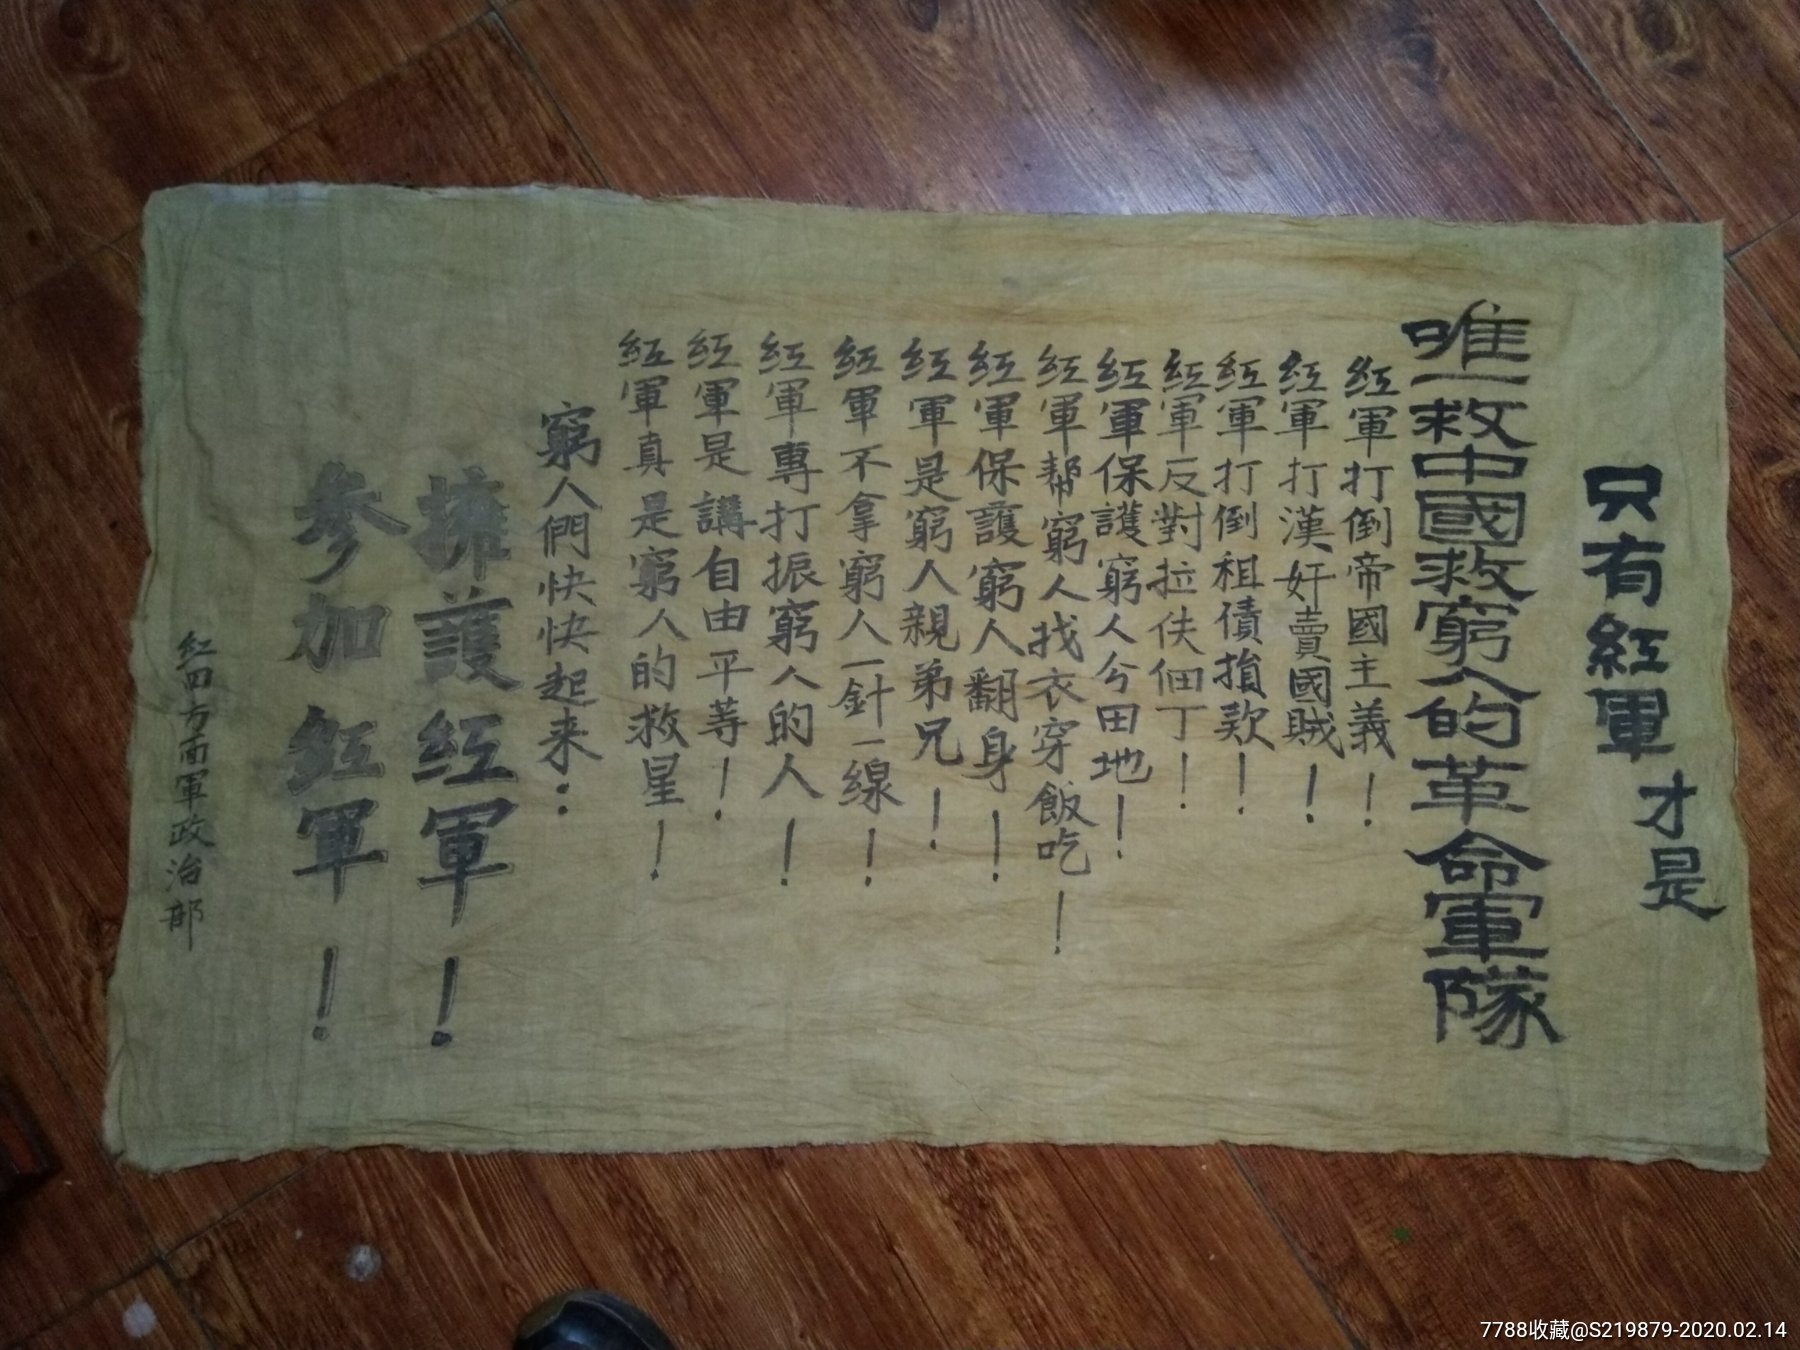 只有紅軍才是
唯一救中國救窮人的革命軍隊
紅軍打倒帝國主義！
紅軍打漢奸賣國賊！
紅軍打倒租債捐欵！
紅軍反對拉伕佃丁！
紅軍保護窮人分田地！
紅軍幇窮人找衣穿飯吃！
紅軍保護窮人翻身！
紅軍是窮人親弟兄！
紅軍不拿窮人一針一線！
紅軍專打振窮人的人！
紅軍是講自由平等！
紅軍真是窮人的救星！
窮人們快快起来：
擁護紅軍！
参加紅軍！
紅四方面軍政治部
7788收藏@S219879-2020.02.14